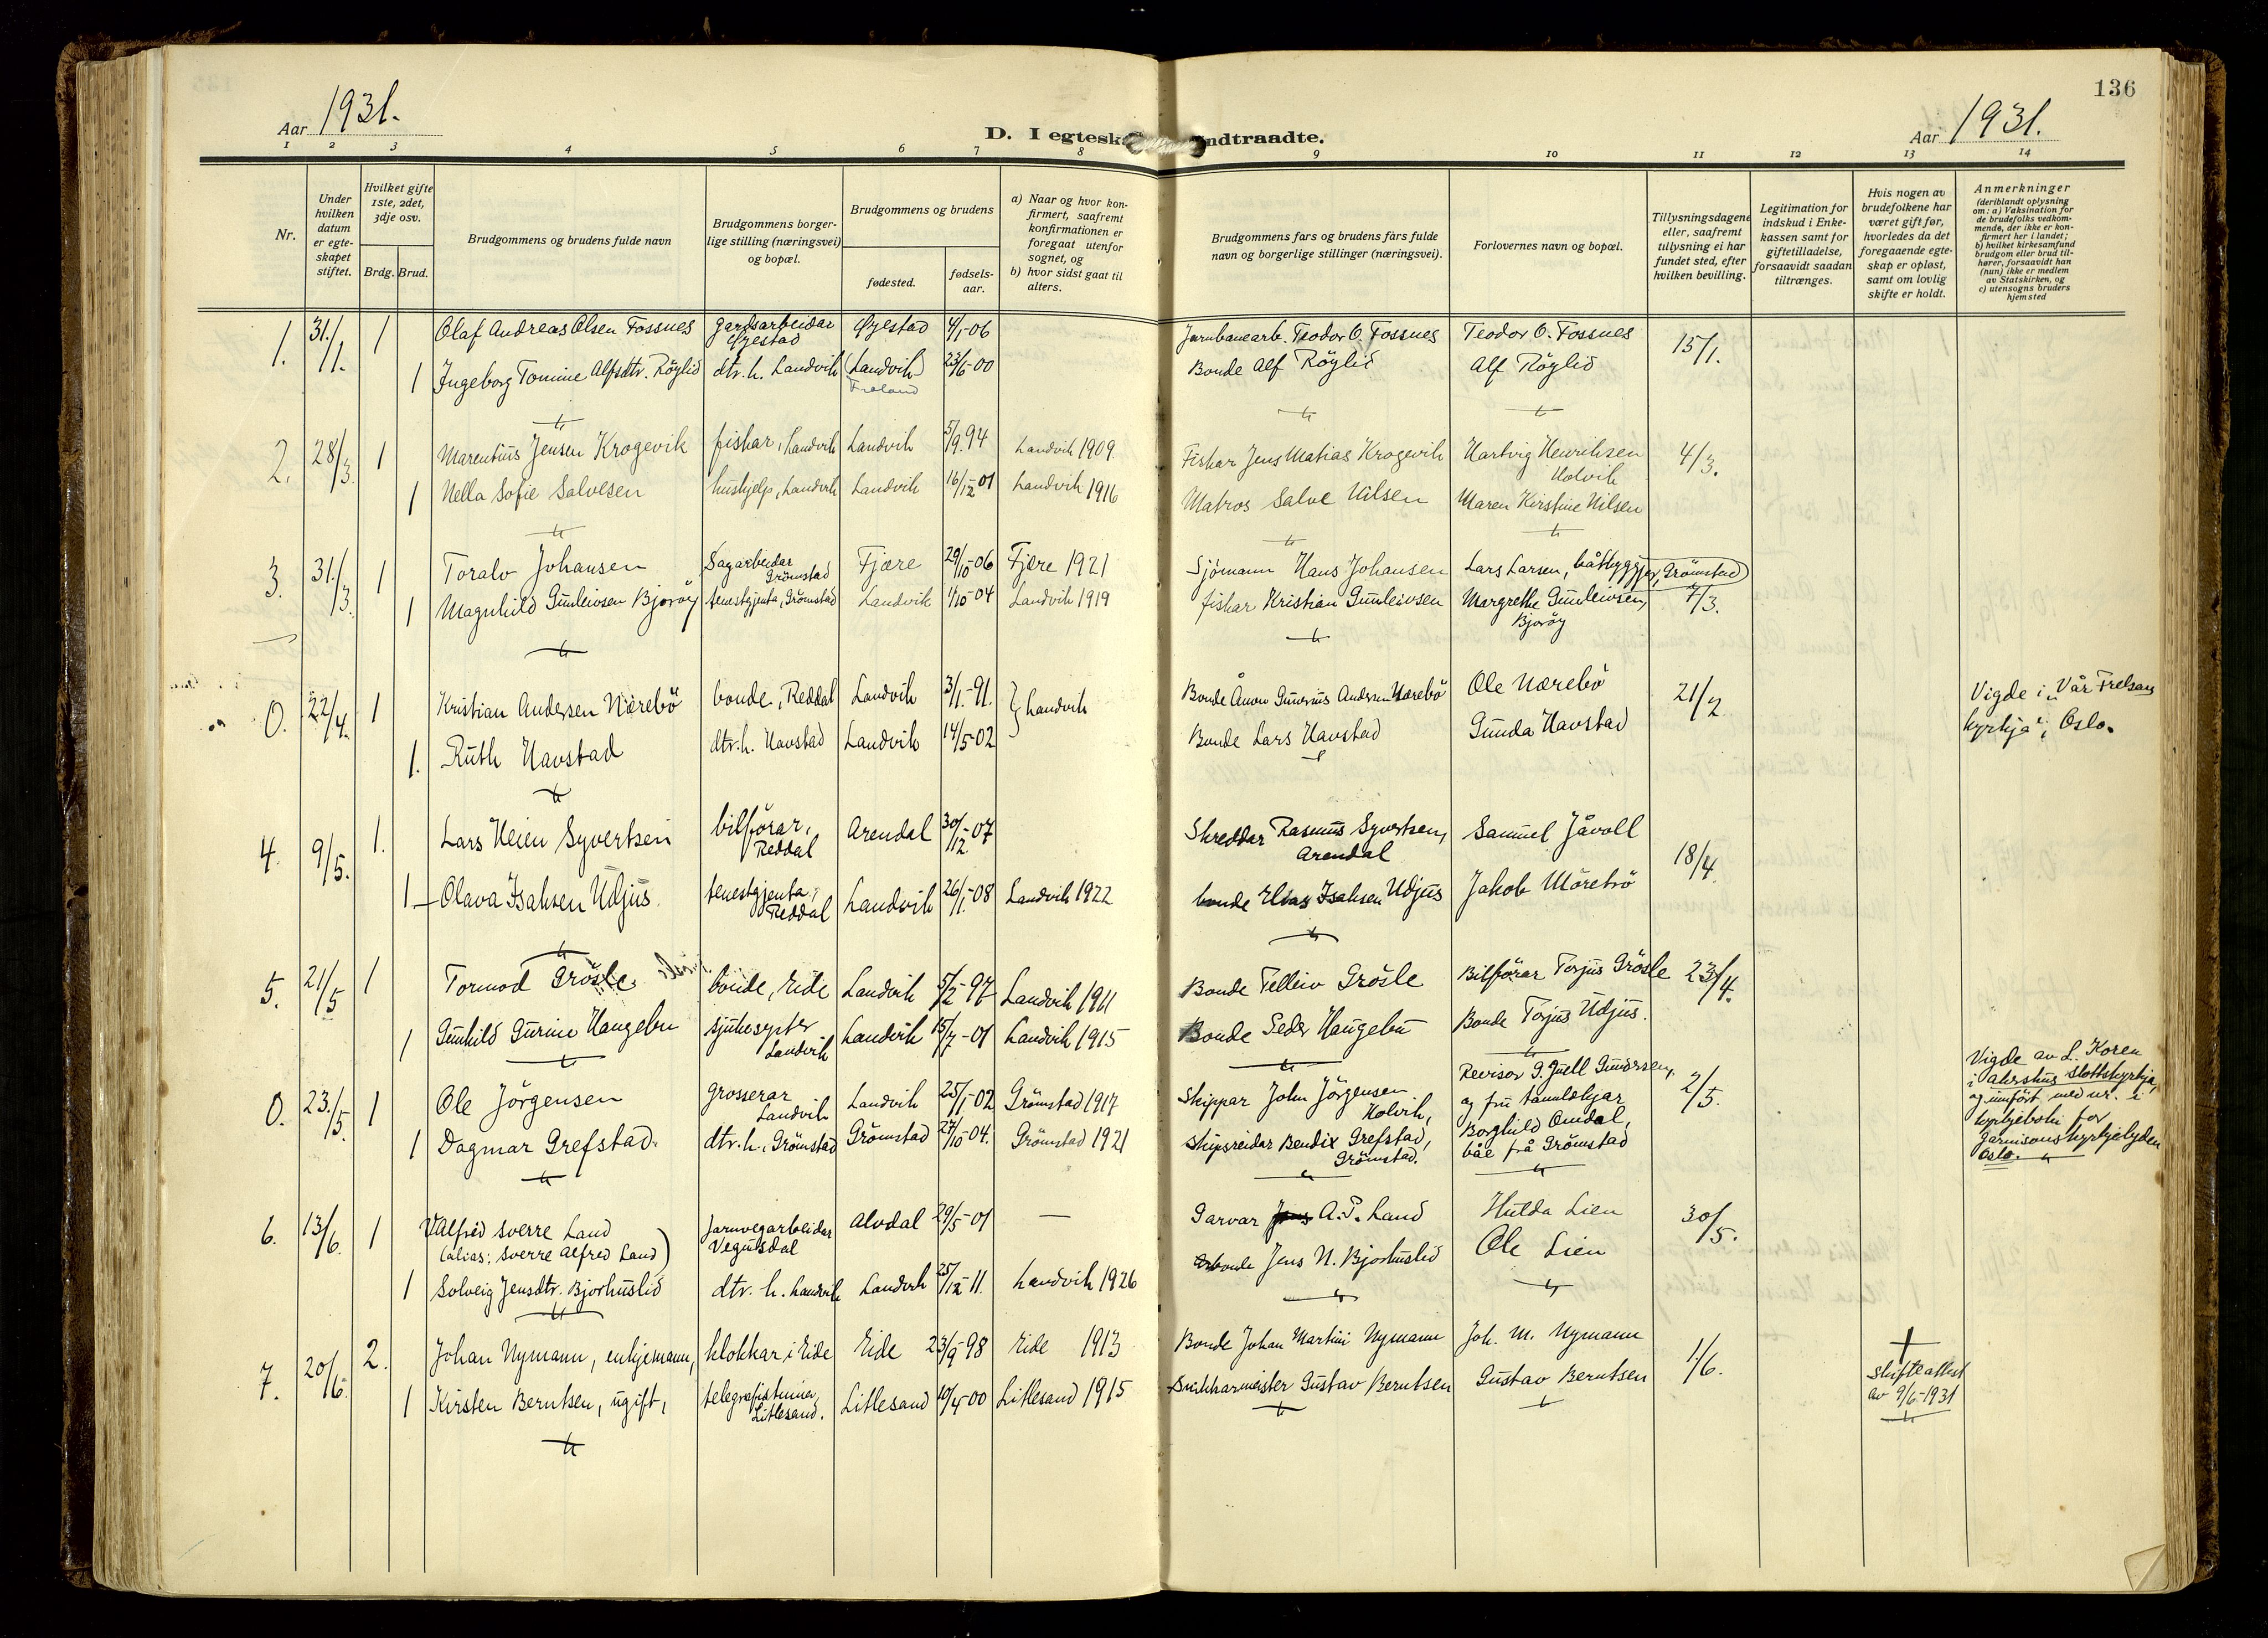 136
Aar 1931.
D. I egtesk ndtraadte.
Aar 1931.
1 2 3 4 5 6 7 8 9 10 11 12 13 14
Nr.
Under hvilken datum er egte-skapet stiftet.
Hvilket gifte 1ste, 2det, 3dje osv.
Brdg. Brud.
Brudgommens og brudens fulde navn
Brudgommens borger-lige stilling (næringsvei) og bopæl.
Brudgommens og brudens
fødested.
fødsels-aar.
a) Naar og hvor kon-firmert, saafremt konfirmationen er foregaat utenfor sognet, og
b) hvor sidst gaat til alters.
Brudgommens fars og brudens fars fulde navn og borgerlige stillinger (næringsvei).
Forlovernes navn og bopæl.
Tillysningsdagene eller, saafremt tillysning ei har fundet sted, efter hvilken bevilling.
Legitimation for indskud i Enke-kassen samt for giftetilladelse, forsaavidt saadan tiltrænges.
Hvis nogen av brudefolkene har været gift før, hvorledes da det foregaaende egte-skap er opløst, samt om lovlig skifte er holdt.
Anmerkninger
(deriblandt oplysning om: a) Vaksination for de brudefolks vedkom-mende, der ikke er kon-firmert her i landet; b) hvilket kirkesamfund brudgom eller brud til-hører, forsaavidt han (hun) ikke er medlem av Statskirken, og c) utensogns bruders hjemsted
1. 31/1. 1 Olaf Andreas Olsen Fossnes gardsarbeidar Øyestad Øyestad 4/1-06 Jarnbanearb. Teodor O. Fossnes Teodor O. Fossnes 15/1.
1 Ingeborg Tomine Alfsdtr. Röylid dtr. h. Landvik (Landvik) Froland 23/6-00 Bonde Alf Röylid Alf Röylid
2. 28/3. 1 Marentius Jensen Krogevik fiskar, Landvik Landvik 5/9.94 Landvik 1909 Fiskar Jens Matias Krogevik Hartvig Henriksen Holvik 4/3.
1 Nella Sofie Salvesen hushjelp, Landvik Landvik 16/12-01 Landvik 1916 Matros Salve Nilsen Maren Kirstine Nilsen
3. 31/3. 1 Toralv Johansen Sagarbeidar Grömstad Fjære 29/10-06 Fjære 1921 Sjömann Hans Johansen Lars Larsen, båtbyggjar, Grömstad
1 Magnhild Gunleivsen Bjoröy tenestgjenta, Grömstad Landvik 1/10-04 Landvik 1919 fiskar Kristian Gunleivsen Margrethe Gunleivsen, Bjoröy 7/3.
0. 22/4. 1 Kristian Andersen Nærebö bonde, Reddal Landvik 3/1-91. } Landvik Bonde Ånon Gunerius Andersen Nærebö Ole Nærebö 21/2 Vigde i „Vår Frelsars
1. Ruth Havstad dtr. h. Havstad Landvik 14/5-02 Bonde Lars Havstad Gunda Havstad kyrkja“, Oslo.
4. 9/5. 1. Lars Heien Syvertsen bilförar, Reddal Arendal 30/12-07 Skreddar Rasmus Syvertsen, Arendal Samuel Jåvoll 18/4.
1 Olava Isaksen Udjus. tenestgjenta, Reddal Landvik 26/1-08 Landvik 1922 bonde Elias Isaksen Udjus Jakob Mörebrö
5. 21/5 1 Tormod Grösle. bonde, Eide Landvik 5/2-97 Landvik 1911 Bonde Telleiv Grösle Bilförar Torjus Grösle 23/4.
1 Gunhild Gurine Haugebu sjukesyster Landvik Landvik 15/7-01 Landvik 1915 Bonde Peder Haugebu Bonde Torjus Udjus.
0. 23/5. 1 Ole Jörgensen grosserar Landvik Landvik 25/1-02 Grömstad 1917 Skippar John Jörgensen Holvik, Revisor G. Juell Gundersen, og fru tannlækjar 2/5.
1 Dagmar Grefstad. dtr. h., Grömstad Grömstad 27/10-04. Grömstad 1921 Skipsreidar Bendix Grefstad, Grömstad. Borghild Omdal, båe frå Grömstad
Vigde av L. Koren
i Akershus Slottskyrkja,
og innfört med nr. 2 i
kyrkjeboki for
Garnisonskyrkjelyden
Oslo.
6. 13/6. 1 Alfred Sverre Land (alias: Sverre Alfred Land) Jarnvegarbeidar Vegusdal Alvdal 29/5-01 — Garvar A. P. Land Hulda Lien 30/5.
1 Solveig Jensdtr. Bjorhuslid dtr. h. Landvik Landvik 25/12-11. Landvik 1926 bonde Jens N. Bjorhuslid Ole Lien
7. 20/6. 2. Johan Nymann, enkjemann, klokkar i Eide Eide 23/9-98 Eide 1913 Bonde Johan Martin Nymann Joh. M. Nymann 1/6. Skifteattest
1 Kirsten Berntsen, ugift, telegrafistinne, Litlesand. Litlesand 10/4-00 Litlesand 1915 Snikkarmeister Gustav Berntsen Gustav Berntsen av 9/6-1931